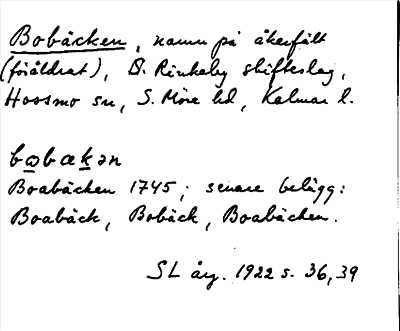 Bobäcken, namn på åkerfält
(föråldrat), Ö. Rinkaby skifteslag,
Hossmo sn, S. Möre hd, Kalmar l.
bobækən
Boabäcken 1745; senare belägg:
Boabäck, Bobäck, Boabäcken.
SL årg. 1922 s. 36, 39